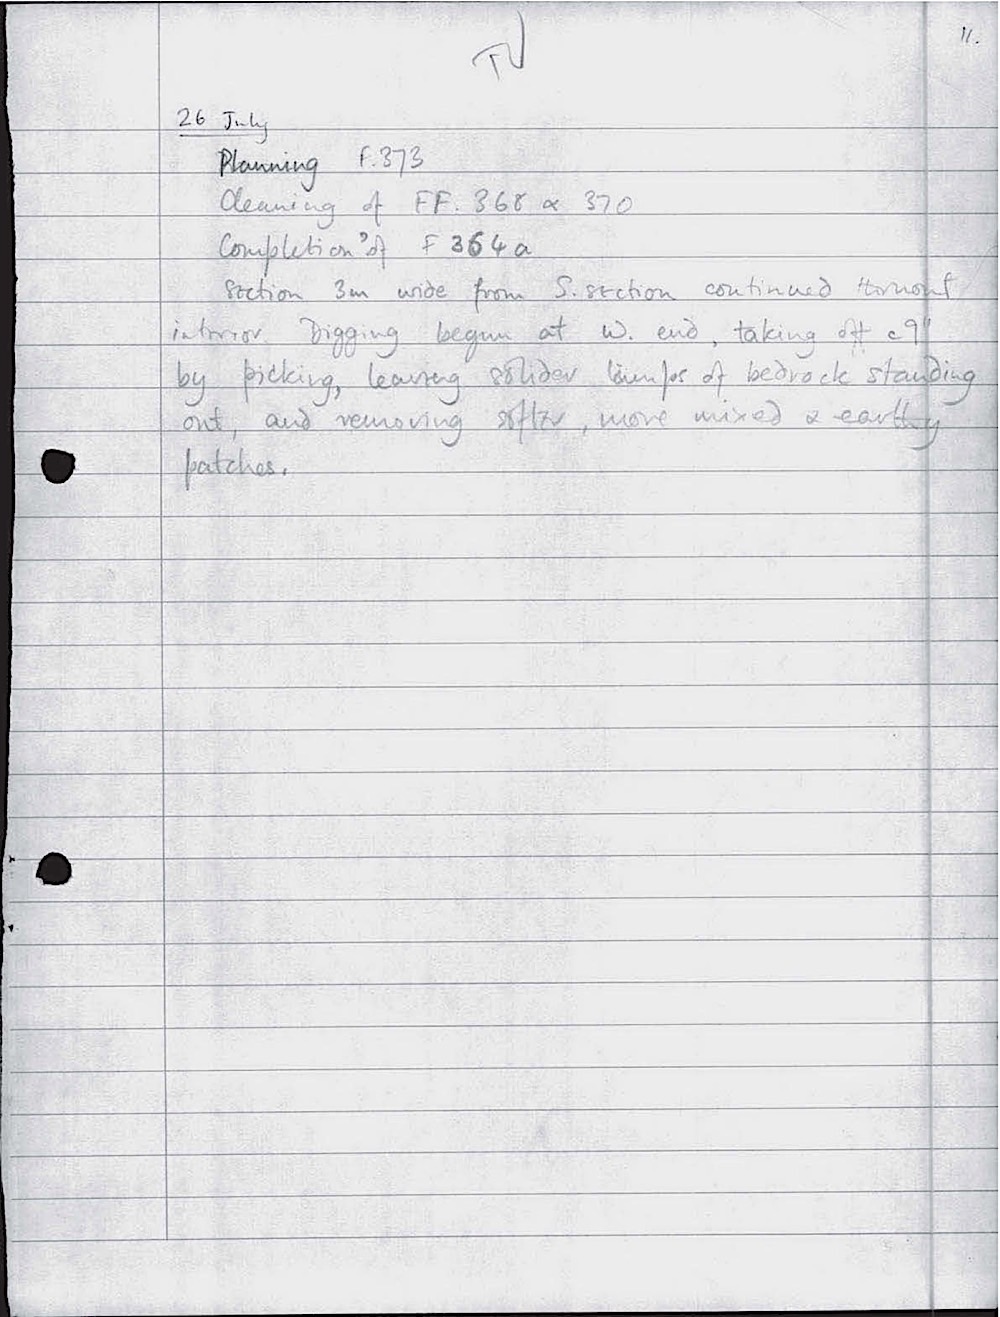 11.
26 July
Planning F.373
Cleaning of FF. 368 & 370
Completion of F 364a
Section 3m wide from S. section continued
interior. Digging begun at W. end, taking off c9"
by picking, leaving solider lumps of bedrock standing
out, and removing softer, more mixed & earthy
patches.